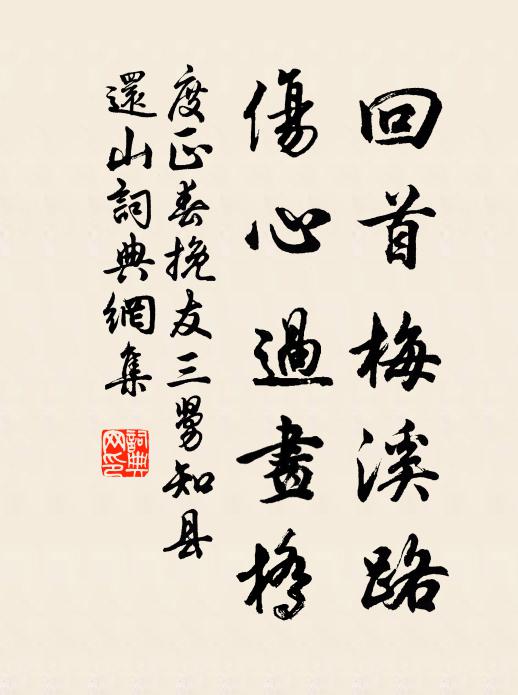 回首梅溪路
傷心過畫橋
度正春挽友三舅知县
還山詞典網集
詞典
网印